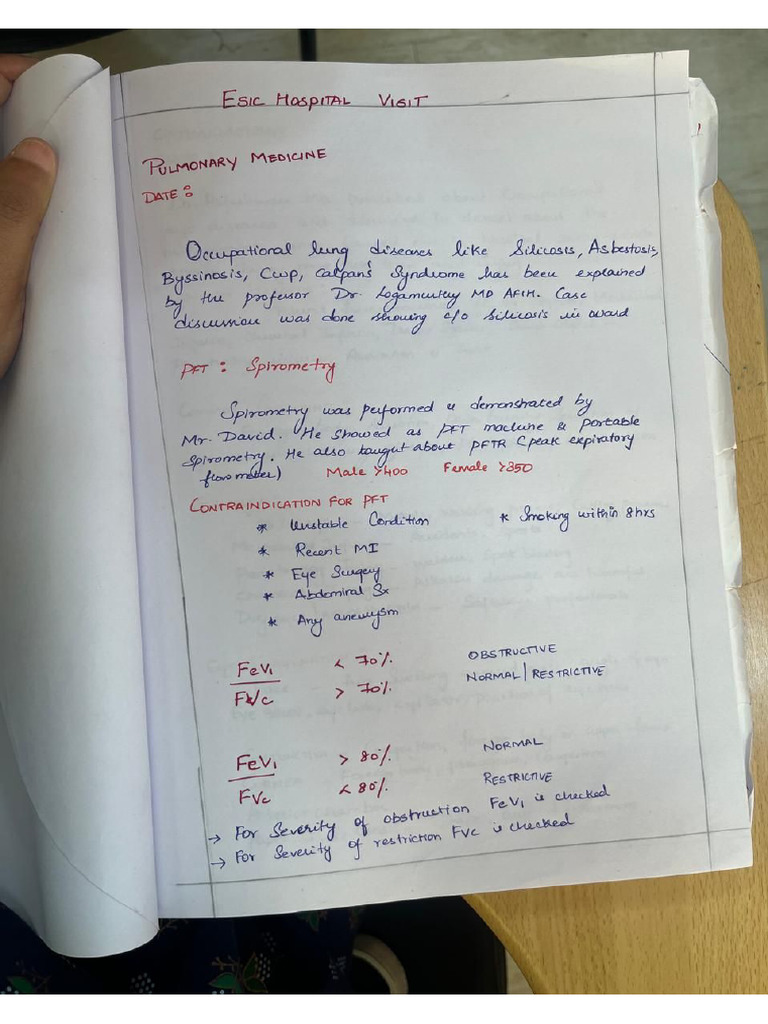 ESIC HOSPITAL VISIT
PULMONARY MEDICINE
DATE :
Occupational lung diseases like Silicosis, Asbestosis,
Byssinosis, Cwp, Calpan's Syndrome has been explained
by the professor Dr. Logamurthy MD AFIH. Case
discussion was done showing c/o Silicosis in ward
PFT : Spirometry
Spirometry was performed & demonstrated by
Mr. David. He showed as PFT machine & portable
Spirometry. He also taught about PFTR (peak expiratory
flow meter) Male >400 Female >350
CONTRAINDICATION FOR PFT
* Unstable Condition * Smoking within 8hrs
* Recent MI
* Eye Surgery
* Abdomiral Sx
* Any aneurysm
FeV1 < 70% OBSTRUCTIVE
FVc > 70% NORMAL | RESTRICTIVE
FeV1 > 80% NORMAL
FVc < 80% RESTRICTIVE
→ For Severity of obstruction FeV1 is checked
→ For Severity of restriction FVc is checked